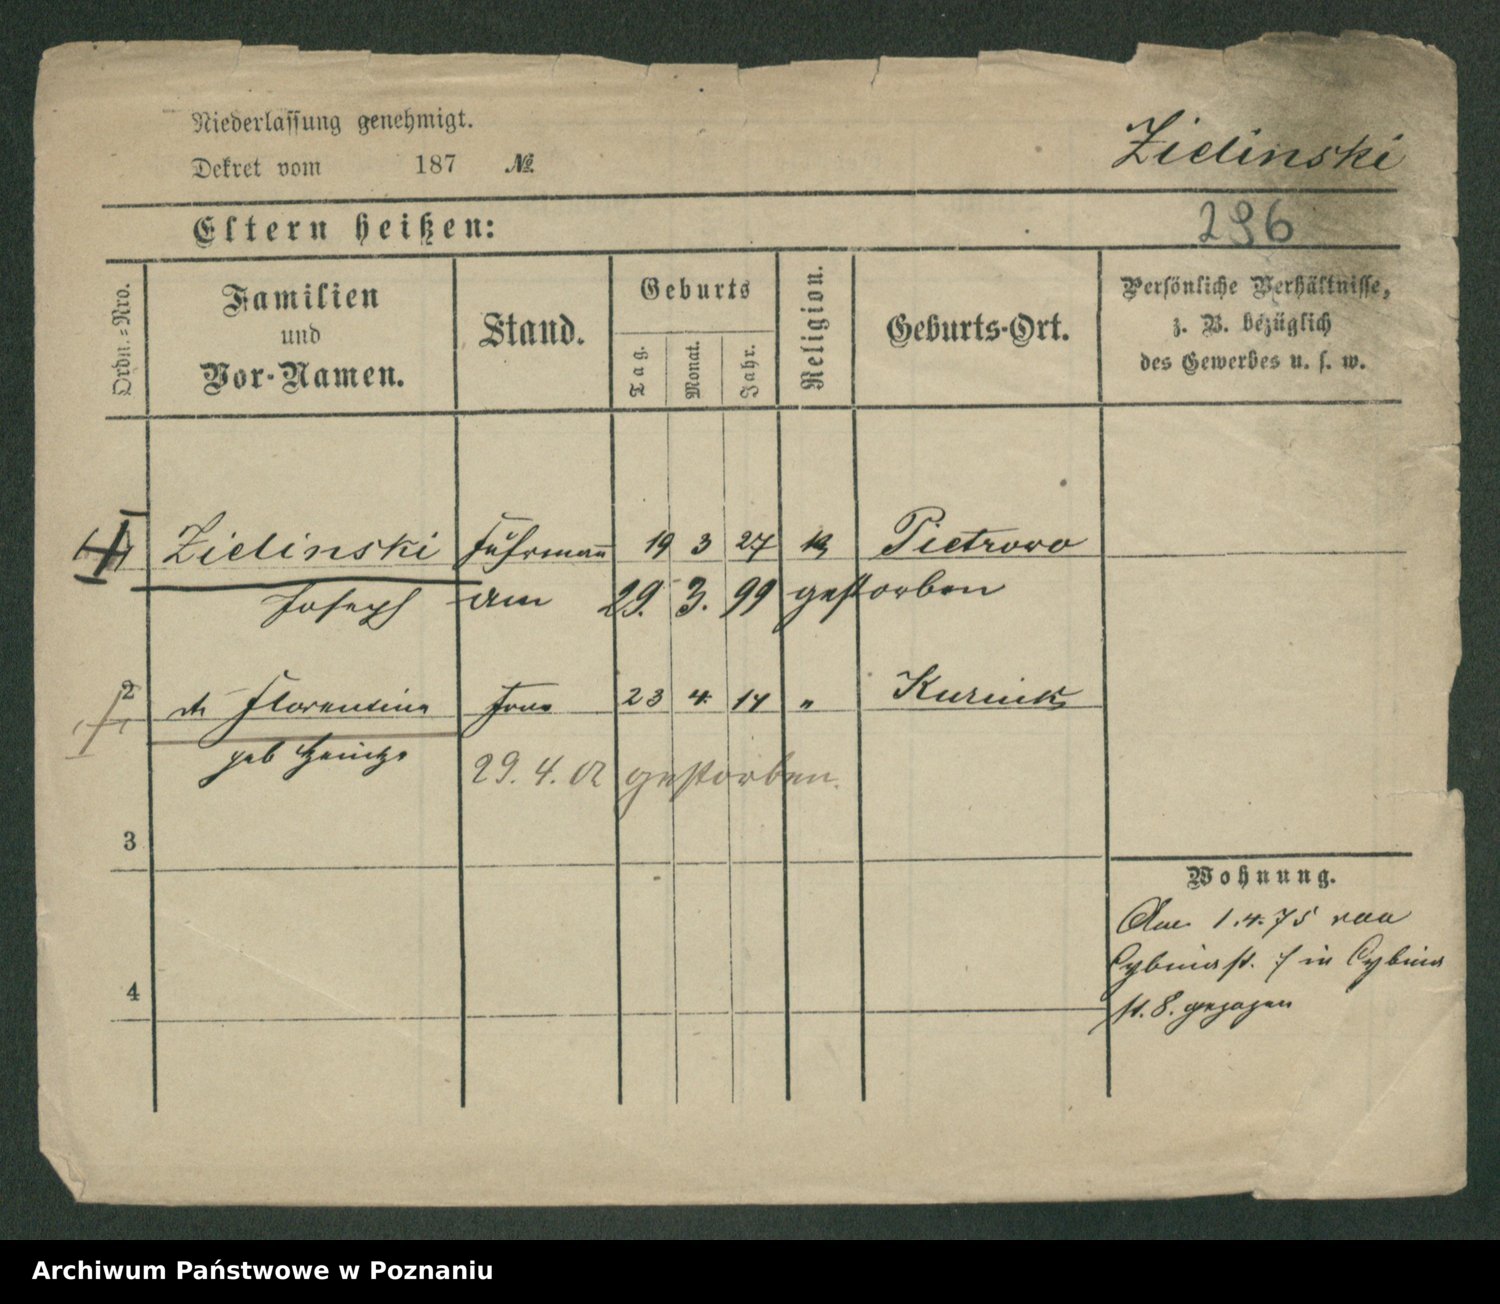 Niederlassung genehmigt.
Dekret vom 187 №
Zielinski
Eltern heißen:
296
Ordn.-Nro.
Familien
und
Vor-Namen.
Stand.
Geburts
Tag.
Monat.
Jahr.
Religion.
Geburts-Ort.
Persönliche Verhältnisse,
z. B. bezüglich
des Gewerbes u. s. w.
Zielinski Fuhrmann 19 3 27 Pietrowo
Joseph am 29. 3. 99 gestorben
2 Florentine Frau 23 4 14 " Kurnik
geb
29.4.02 gestorben.
3
4
Wohnung.
Am 1.4.75 von
Cybinast. 7 in Cybina
st. 8. gezogen